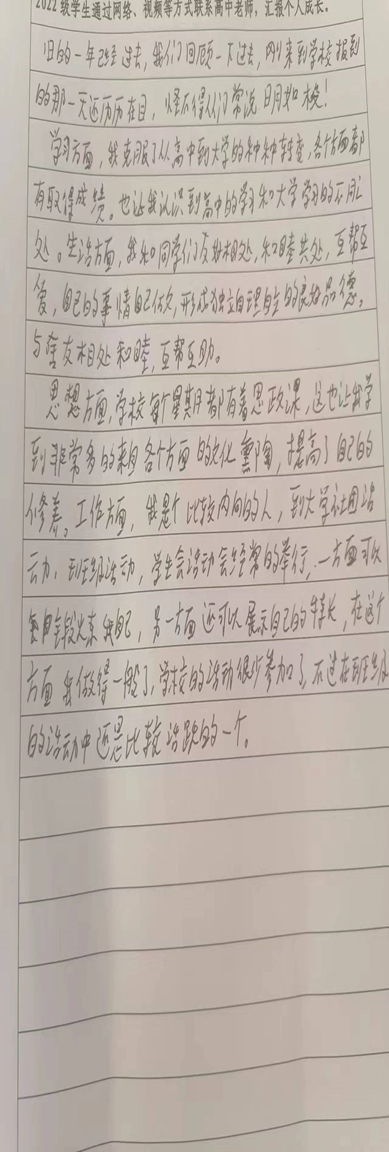 2022级学生通过网络、视频等方式联系高中老师，汇报个人成长。
旧的一年已经过去，我们回顾一下过去，刚来到学校报到
的那一天还历历在目，怪不得人们常说日月如梭！
学习方面，我克服了从高中到大学的种种转变，各个方面都
有取得成绩。也让我认识到高中的学习和大学学习的不同之
处。生活方面，我和同学们友好相处，和睦共处，互帮互
爱，自己的事情自己做，形成独立自理自主的良好品德。
与室友相处和睦，互帮互助。
思想方面，学校每个星期都有着思政课，这也让我学
到非常多的来自各个方面的文化熏陶，提高了自己的
修养。工作方面，我是个比较内向的人，到大学社团活
动，班级活动，学生会活动会经常的举行，一方面可以
锻炼我自己，另一方面还可以展示自己的特长，在这个
方面我做得一般了，学校的活动很少参加了，不过在班级
的活动中还是比较活跃的一个。